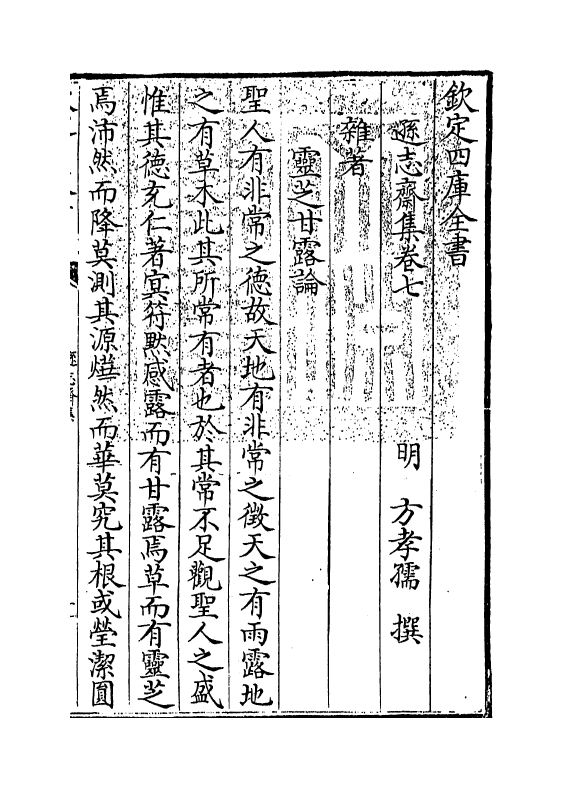 欽定四庫全書
遜志齋集卷七
明 方孝孺 撰
雜著
靈芝甘露論
聖人有非常之德故天地有非常之徵天之有雨露地
之有草木此其所常有者也於其常不足觀聖人之盛
惟其德充仁著㝠符黙感露而有甘露焉草而有靈芝
焉沛然而降莫測其源燁然而華莫究其根或瑩潔圓